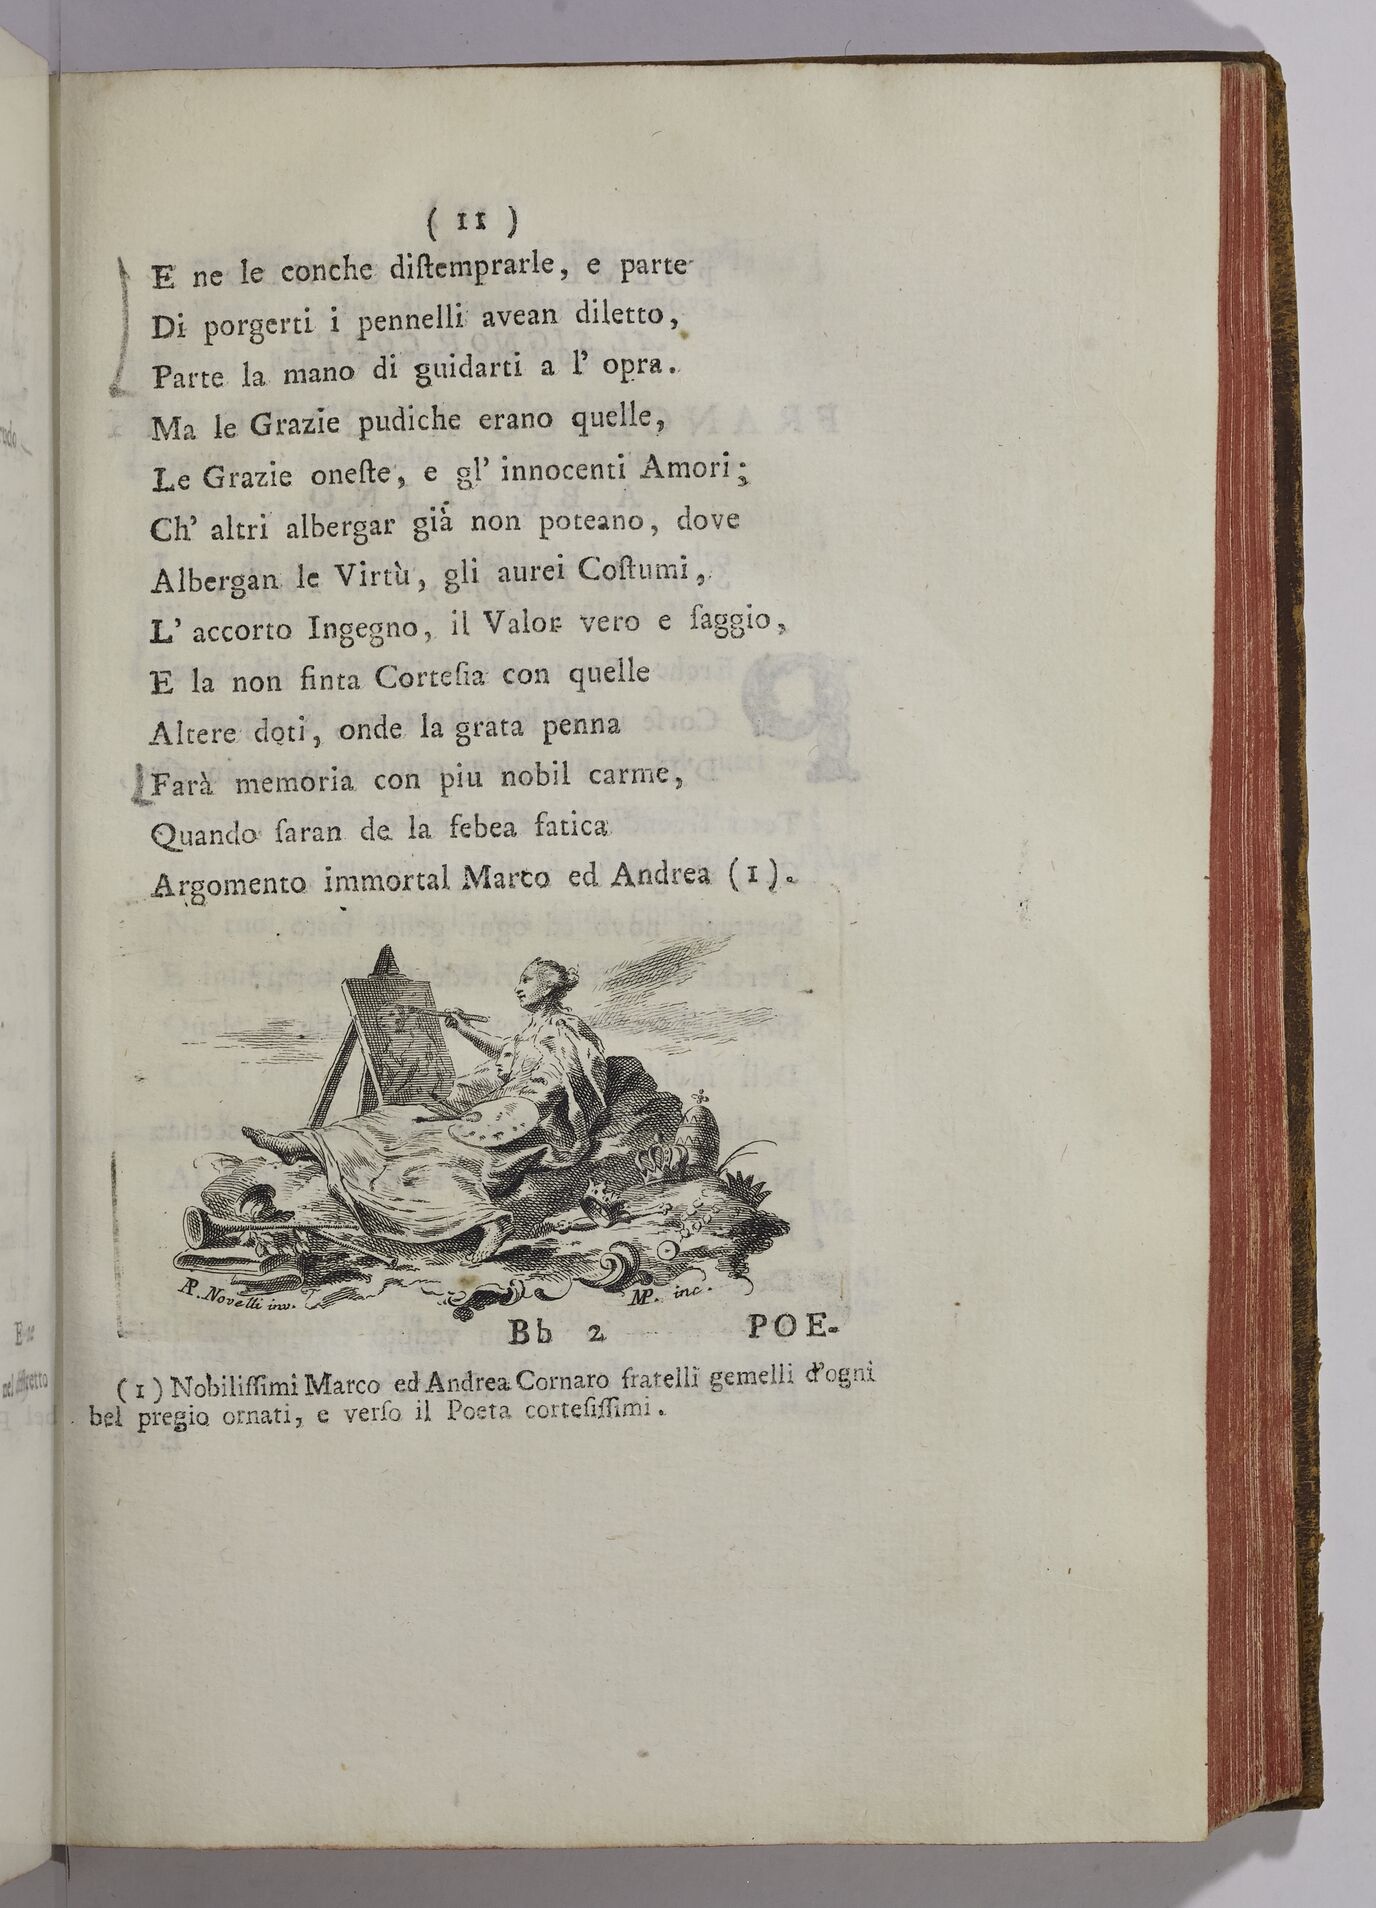 ( 11 )
E ne le conche diſtemprarle, e parte
Di porgerti i pennelli avean diletto,
Parte la mano di guidarti a l' opra.
Ma le Grazie pudiche erano quelle,
Le Grazie oneſte, e gl' innocenti Amori;
Ch' altri albergar già non poteano, dove
Albergan le Virtù, gli aurei Coſtumi,
L' accorto Ingegno, il Valor vero e ſaggio,
E la non finta Corteſia con quelle
Altere doti, onde la grata penna
Farà memoria con piu nobil carme,
Quando ſaran de la febea fatica
Argomento immortal Marco ed Andrea (1).
AP. Novelli inv.
MP. inc.
Bb 2 POE-
(1) Nobiliſſimi Marco ed Andrea Cornaro fratelli gemelli d'ogni
bel pregio ornati, e verſo il Poeta corteſiſſimi.